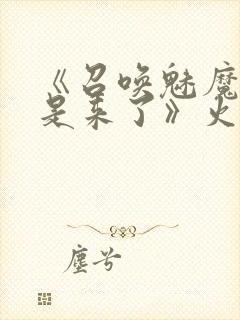 《召唤魅魔
是来了》火
塵兮